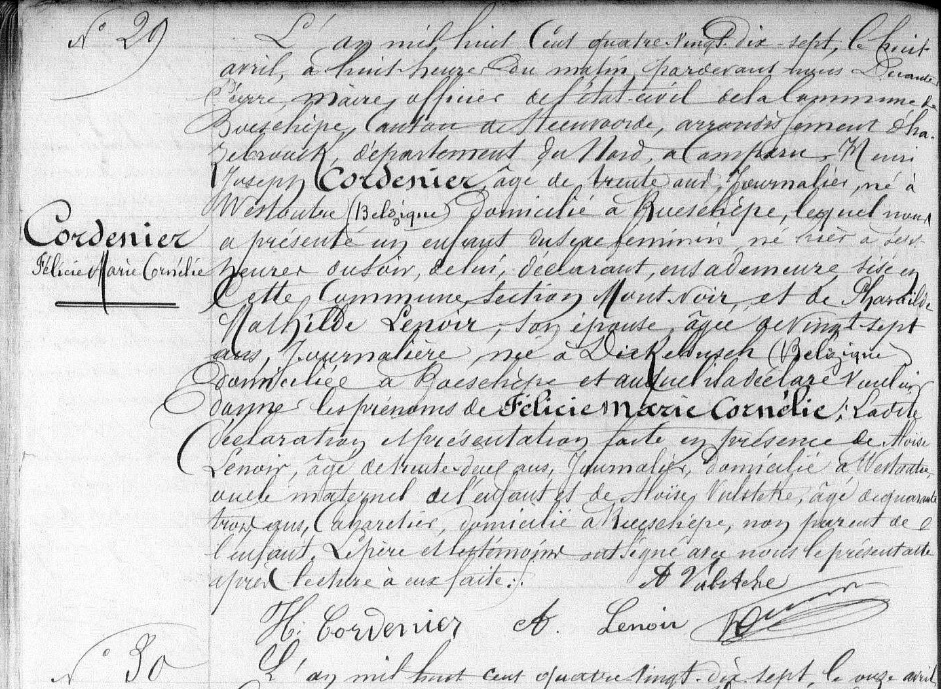 N° 29
L'an mil huit Cent quatre-vingt-dix-sept, le huit
avril, à huit heures du matin, pardevant nous
Pierre, Maire, officier de l'état-civil de la Commune de
Boeschèpe, Canton de Steenvoorde, arrondissement d'Ha-
zebrouck, département du Nord, a comparu Henri
Joseph Cordenier, âgé de trente ans, Journalier, né à
Westoutre (Belgique) domicilié à Boeschèpe, lequel nous
a présenté un enfant du sexe féminin, né hier à
heures du soir, de lui, déclarant, en sa demeure sise en
Cette Commune, section Mont-Noir, et de Pharaïlde
Mathilde Lenoir, son épouse, âgée de vingt-sept
ans, Journalière, née à Dickebusch (Belgique)
domiciliée à Boeschèpe et auquel il a déclaré vouloir
donner les prénoms de Félicie Marie Cornélie; La dite
déclaration et présentation faite en présence de Aloïse
Lenoir, âgé de trente-deux ans, Journalier, domicilié à Westoutre,
oncle maternel de l'enfant et de Aloïse, âgé de quarante
trois ans, Cabaretier, domicilié à Boeschèpe, non parent de
l'enfant. Le père et les témoins ont signé avec nous le présent acte
après lecture à eux faite:
Cordenier
Félicie Marie Cornélie
H. Cordenier A. Lenoir
N° 30
L'an mil huit cent quatre vingt-dix-sept, le onze avril